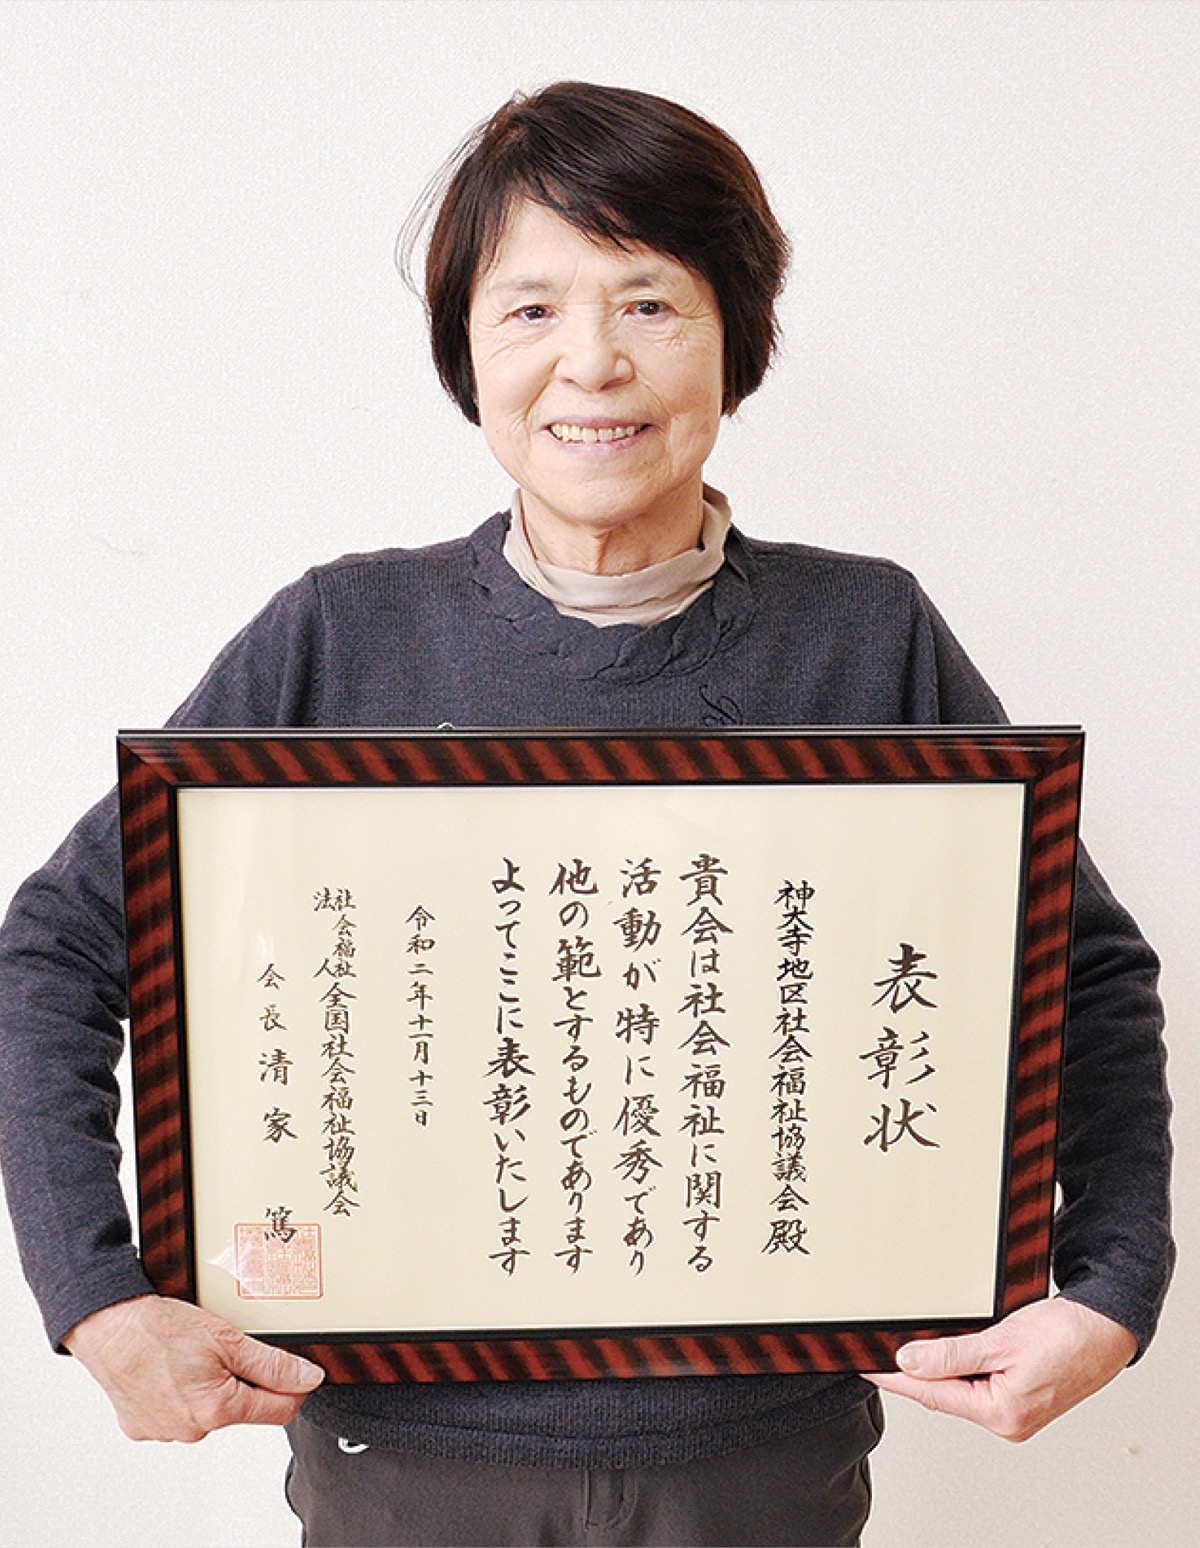 表彰状
神大寺地区社会福祉協議会殿
貴会は社会福祉に関する
活動が特に優秀であり
他の範とするものであります
よってここに表彰いたします
令和二年十一月十三日
社会福祉法人全国社会福祉協議会
会長清家篤